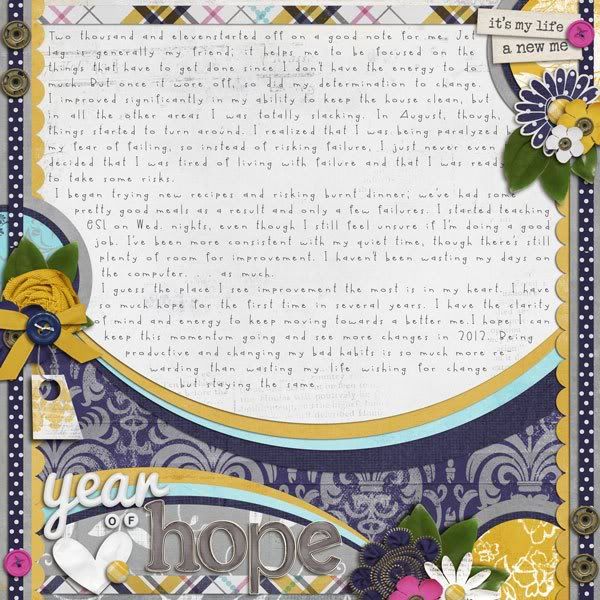 it's my life
a new me
Two thousand and elevenstarted off on a good note for me. Jet
lag is generally my friend; it helps me to be focused on the
things that have to get done since I don't have the energy to do
much. But once it wore off, so did my determination to change.
I improved significantly in my ability to keep the house clean, but
in all the other areas I was totally slacking. In August, though,
things started to turn around. I realized that I was being paralyzed b
my fear of failing, so instead of risking failure, I just never even
decided that I was tired of living with failure and that I was ready
to take some risks.
I began trying new recipes and risking burnt dinner; we've had some
pretty good meals as a result and only a few failures. I started teaching
ESL on Wed. nights, even though I still feel unsure if I'm doing a good
job. I've been more consistent with my quiet time, though there's still
plenty of room for improvement. I haven't been wasting my days on
the computer. . . . as much.
I guess the place I see improvement the most is in my heart. I have
so much hope for the first time in several years. I have the clarity
of mind and energy to keep moving towards a better me.I hope I can
keep this momentum going and see more changes in 2012. Being
productive and changing my bad habits is so much more re-
warding than wasting my life wishing for change
but staying the same.
year
OF
hope